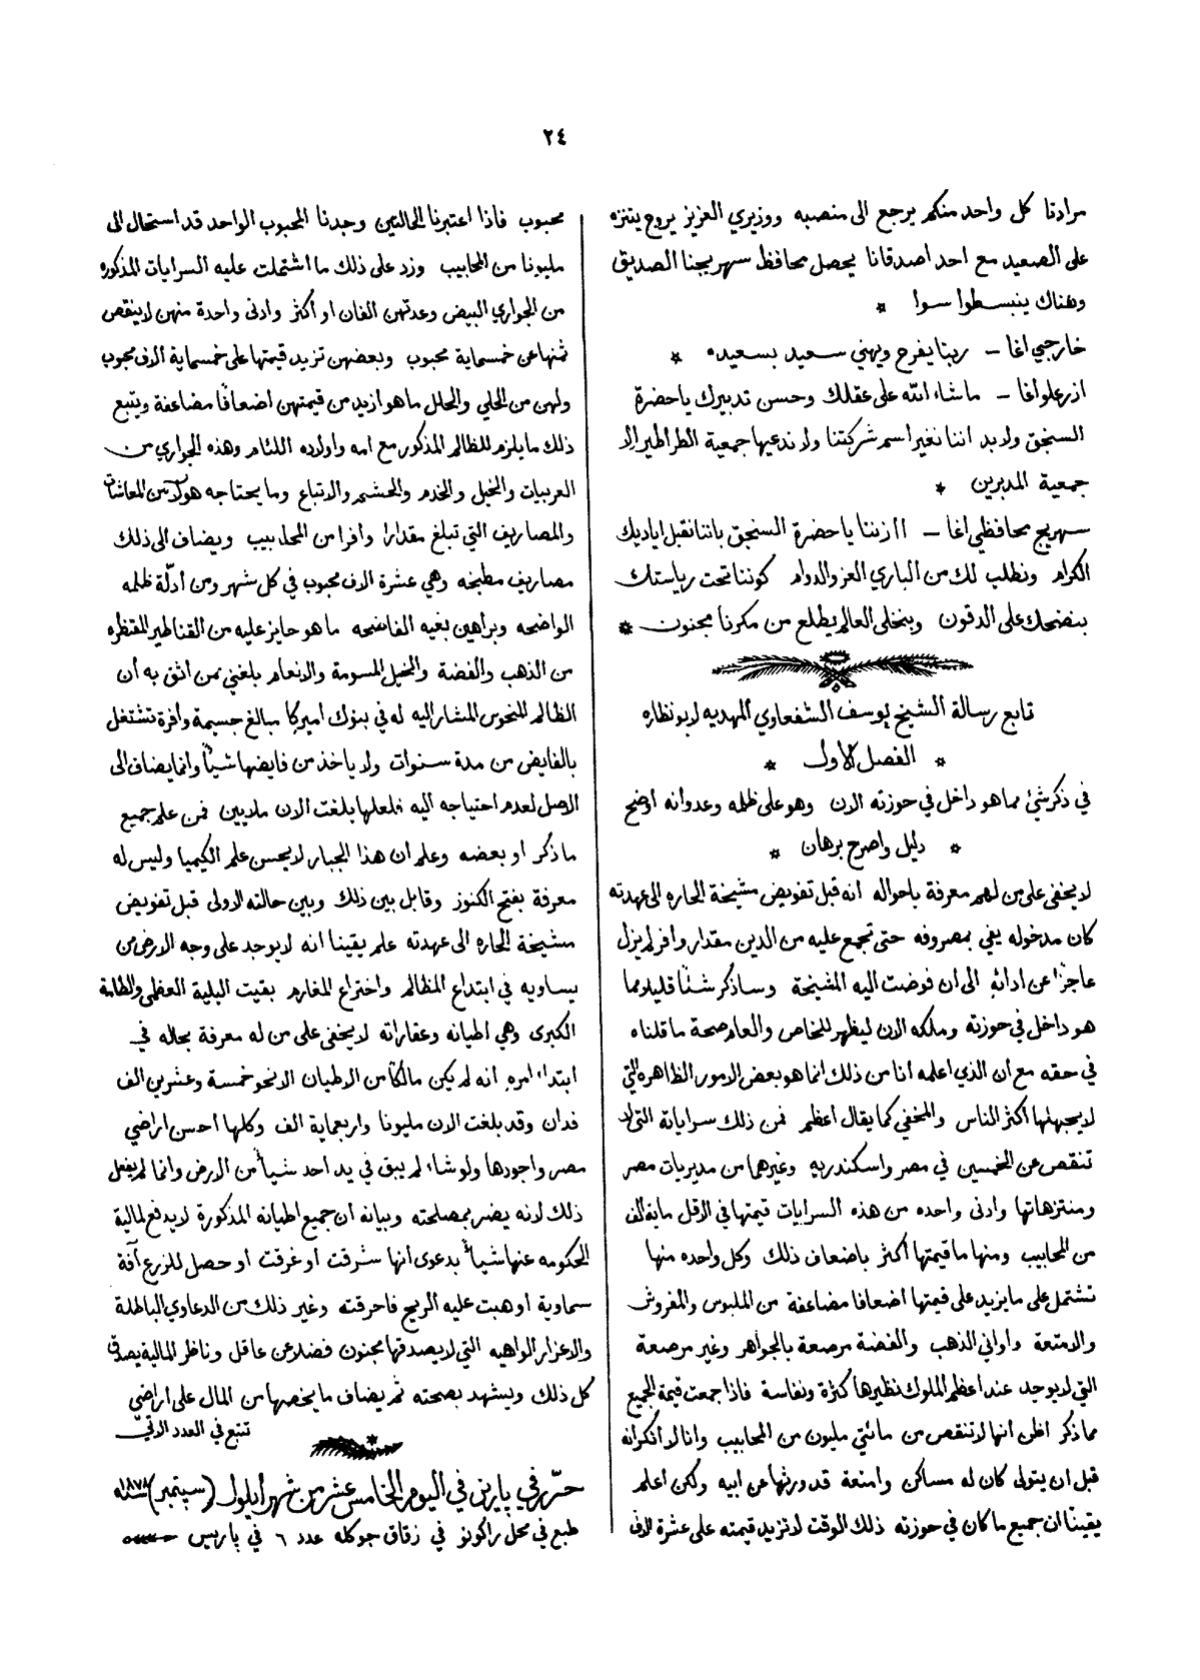 ٢٤
مرادنا كل واحد منكم يرجع الى منصبه ووزيري العزيز يروح يتنزه
على الصعيد مع احد اصدقانا يحصل محافظ سهريجنا الصديق
وهناك ينبسطوا سوا *
خارجي اغا – ربنا يفرح ويهني سعيد بسعيده *
ازعلوا اغا – ماشاء الله على عقلك وحسن تدبيرك يا حضرة
السنجق ولا بد اننا نغير اسم شركتنا ولا ندعيها جمعية الطراطير الا
جمعية المدبرين *
سهريج محافظي اغا – ااذننا يا حضرة السنجق باننا نقبل اياديك
الكرام ونطلب لك من الباري العز والدوام كوننا تحت رياستك
بنضحك على الدقون وبنخلي العالم يطلع من مكرنا مجنون *
تابع رسالة الشيخ يوسف الشفعاوي المهديه لابو نظاره
* الفصل الاول *
في ذكر شئ مما هو داخل في حوزته الان وهو على ظلمه وعدوانه اوضح
* دليل واصرح برهان *
لا يخفى على من لهم معرفة باحواله انه قبل تفويض مشيخة الحاره الى عهدته
كان مدخوله يفي بمصروفه حتى تجمع عليه من الدين مقدار وافر لم يزل
عاجزا عن ادائه الى ان فوضت اليه المشيخة وساذكر شئا قليلا مما
هو داخل في حوزته وملكه الان ليظهر للخاص والعام صحة ما قلناه
في حقه مع أن الذي اعلمه أنا من ذلك انما هو بعض الامور الظاهره التي
لا يجهلها اكثر الناس والمخفي كما يقال اعظم فمن ذلك سراياته التي لا
تنقص عن الخمسين في مصر واسكندريه وغيرهما من مديريات مصر
ومنتزهاتها وادنى واحده من هذه السرايات قيمتها في الاقل ماية الف
من المحابيب ومنها ما قيمتها أكثر باضعاف ذلك وكل واحده منها
تشتمل على ما يزيد على قيمتها اضعافا مضاعفة من الملبوس والمفروش
والامتعة واواني الذهب والفضة مرصعة بالجواهر وغير مرصعة
التي لا يوجد عند اعظم الملوك نظيرها كثرة ونفاسة فاذا جمعت قيمة الجميع
مما ذكر اظن انها لا تنقص من مائتي مليون من المحابيب وانا لا انكر انه
قبل ان يتولى كان له مساكن وامتعة قد ورثها عن ابيه ولكن اعلم
يقينا ان جميع ما كان في حوزته ذلك الوقت لا تزيد قيمته على عشرة الاف
محبوب فاذا اعتبرنا الحالتين وجدنا المحبوب الواحد قد استحال الى
مليونا من المحابيب وزد على ذلك ما اشتملت عليه السرايات المذكوره
من الجواري البيض وعدتهن الفان او أكثر وادنى واحدة منهن لا ينقص
ثمنها عن خمسماية محبوب وبعضهن تزيد قيمتها على خمسماية الاف محبوب
ولهن من الحلي والحلل ما هو ازيد من قيمتهن اضعافا مضاعفة ويتبع
ذلك ما يلزم للظالم المذكور مع امه واولاده اللئام وهذه الجواري من
العربيات والخيل والخدم والحشم والاتباع وما يحتاجه هولاء من المعاشات
والمصاريف التي تبلغ مقدارا وافرا من المحابيب ويضاف الى ذلك
مصاريف مطبخه وهي عشرة الاف محبوب في كل شهر ومن ادلّة ظلمه
الواضحه وبراهين بغيه الفاضحه ما هو حايز عليه من القناطير المقنطره
من الذهب والفضة والخيل المسومة والانعام بلغني ممن اثق به أن
الظالم المنحوس المشار اليه له في بنوك اميركا مبالغ جسيمة وافرة تشتغل
بالفايض من مدة سنوات ولا ياخذ من فايضها شيأ وانما يضاف الى
الاصل لعدم احتياجه اليه فلعلها بلغت الان ملايين فمن علم جميع
ما ذكر او بعضه وعلم ان هذا الجبار لا يحسن علم الكيميا وليس له
معرفة بفتح الكنوز وقابل بين ذلك وبين حالته الاولى قبل تفويض
مشيخة الحاره الى عهدته علم يقينا انه لا يوجد على وجه الارض من
يساويه في ابتداع المظالم واختراع المغارم بقيت البلية العظمى والطامة
الكبرى وهي اطيانه وعقاراته لا يخفى على من له معرفة بحاله في
ابتداء امره انه لم يكن مالكا من الاطيان الا نحو خمسة وعشرين الف
فدان وقد بلغت الان مليونا واربعماية الف وكلها أحسن اراضي
مصر واجودها ولو شاء لم يبق في يد احد شيأ من الارض وانما لم يفعل
ذلك لانه يضر بمصلحته وبيانه أن جميع اطيانه المذكورة لا يدفع لمالية
الحكومه عنها شيأ بدعوى أنها شرقت او غرقت او حصل للزرع آفة
سماوية أو هبت عليه الريح فاحرقته وغير ذلك من الدعاوي الباطلة
والاعذار الواهيه التي لا يصدقها مجنون فضلا عن عاقل وناظر المالية يصدق
كل ذلك ويشهد بصحته ثم يضاف ما يخصها من المال على اراضي
تتبع في العدد الاتي
حرّر في پاريز في اليوم الخامس عشر من شهر أيلول (سپتمبر) سنه ١٨٧٨
طبع في محل راكونو في زقاق جوكله عدد ٦ في پاريس